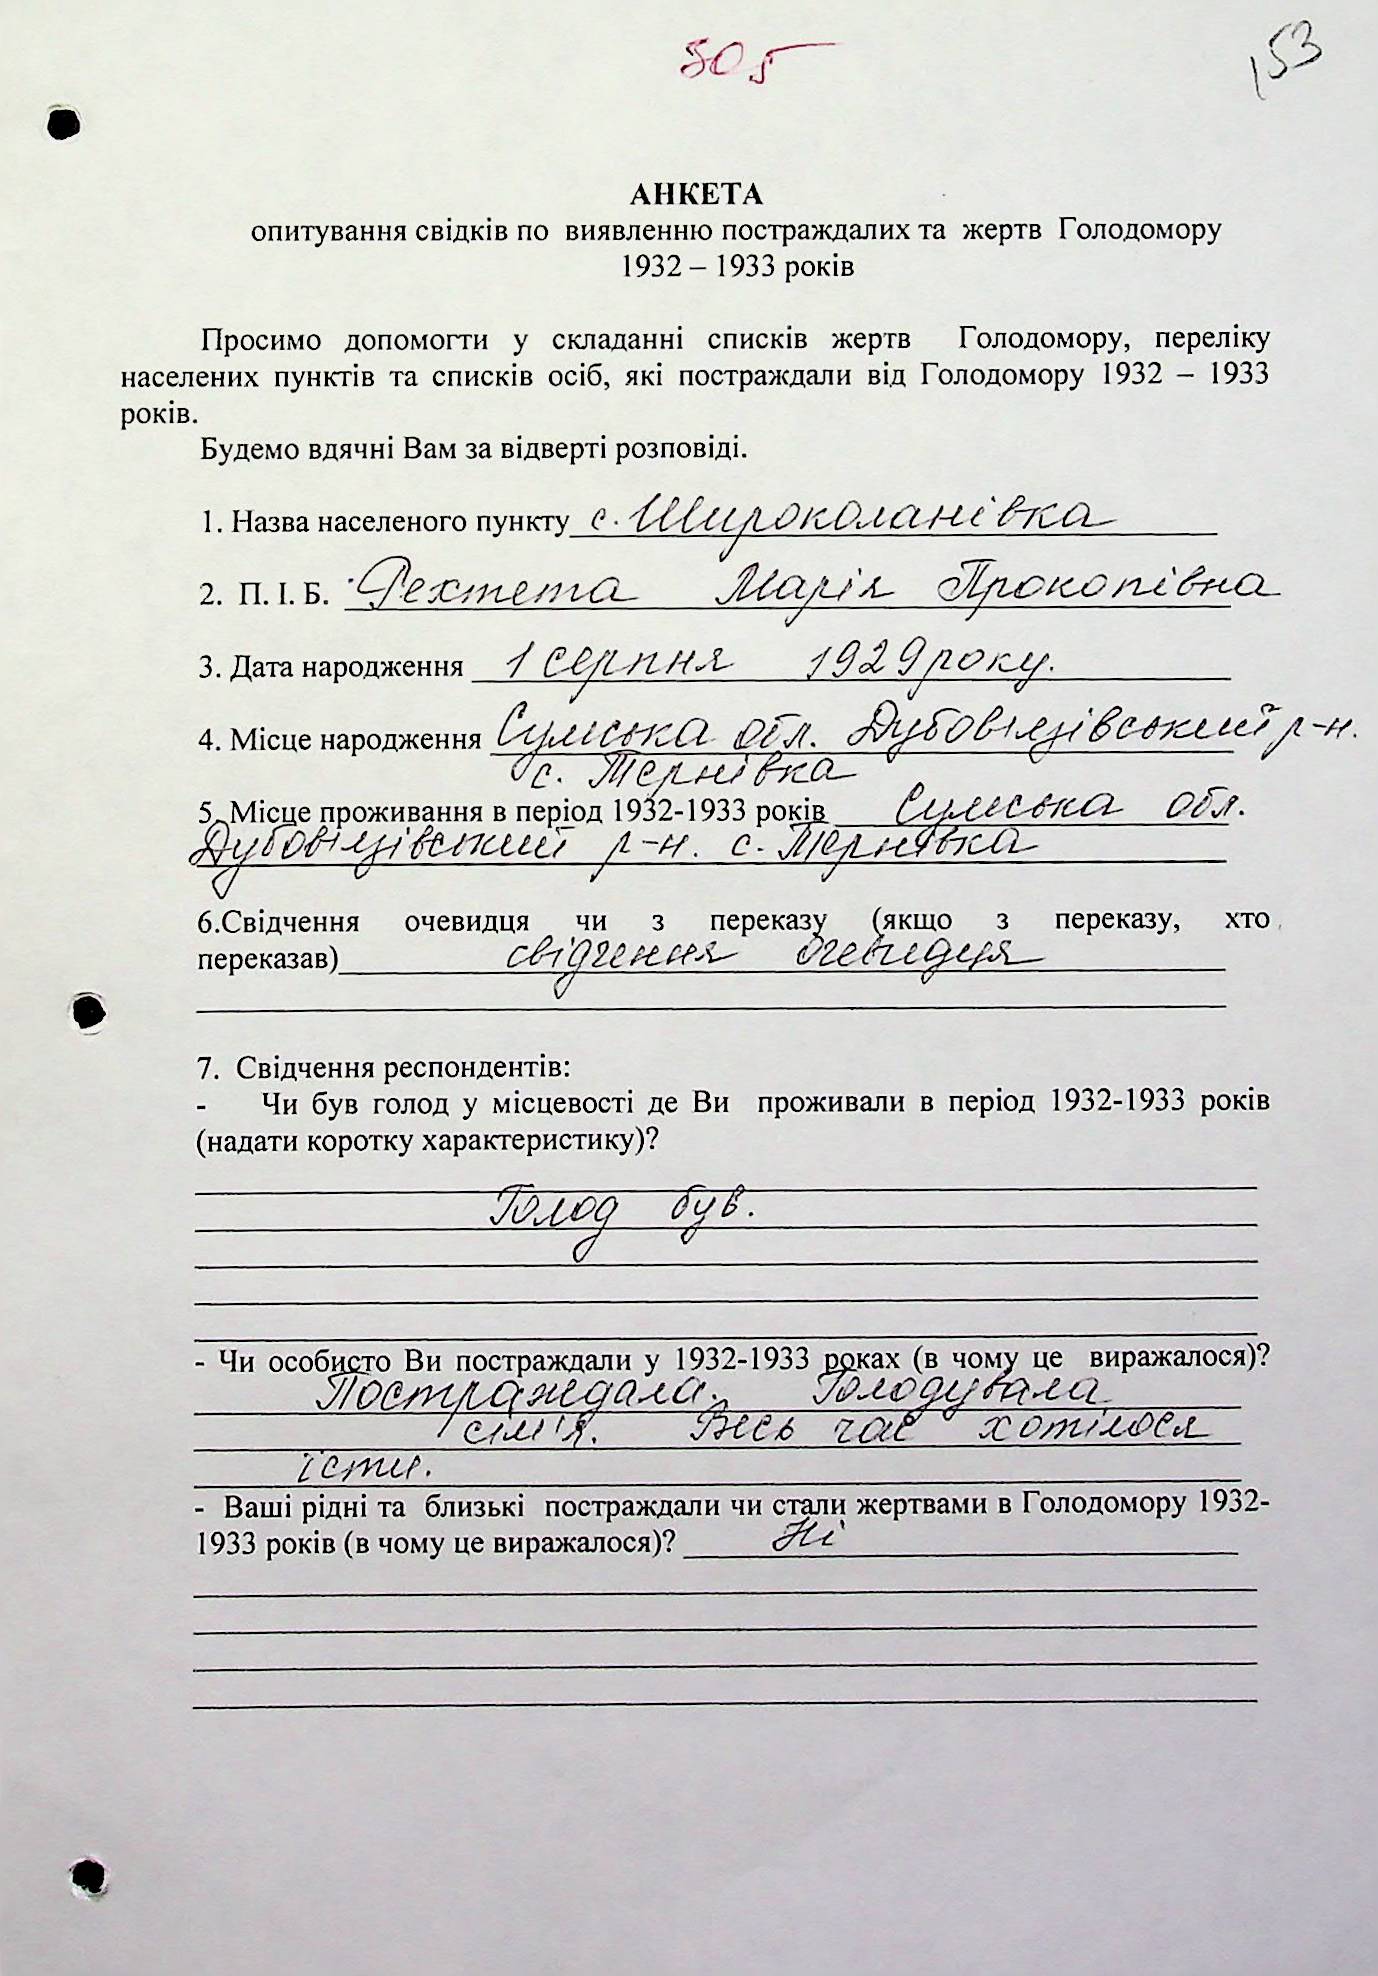 305
153
АНКЕТА
опитування свідків по виявленню постраждалих та жертв Голодомору
1932 – 1933 років
Просимо допомогти у складанні списків жертв Голодомору, переліку
населених пунктів та списків осіб, які постраждали від Голодомору 1932 – 1933
років.
Будемо вдячні Вам за відверті розповіді.
1. Назва населеного пункту с. Широколанівка
2. П. І. Б. Рехтета Марія Прокопівна
3. Дата народження 1 серпня 1929 року.
4. Місце народження Сумська обл. Дубовязівський р-н.
с. Тернівка
5. Місце проживання в період 1932-1933 років Сумська обл.
Дубовязівський р-н. с. Тернівка
6.Свідчення очевидця чи з переказу (якщо з переказу, хто
переказав) свідчення очевидця
7. Свідчення респондентів:
- Чи був голод у місцевості де Ви проживали в період 1932-1933 років
(надати коротку характеристику)?
Голод був.
- Чи особисто Ви постраждали у 1932-1933 роках (в чому це виражалося)?
Постраждала. Голодувала
сім'я. Весь час хотілося
їсти.
- Ваші рідні та близькі постраждали чи стали жертвами в Голодомору 1932-
1933 років (в чому це виражалося)? Ні